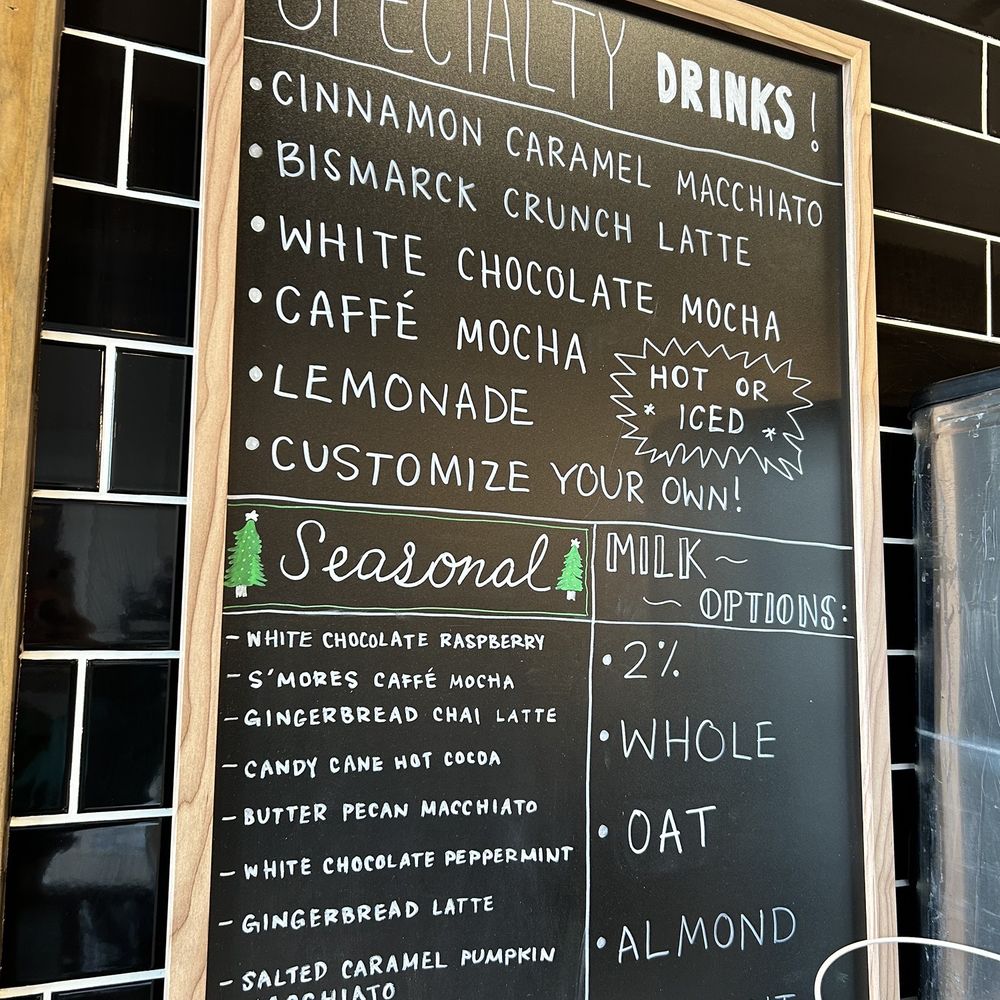 SPECIALTY DRINKS!
• CINNAMON CARAMEL MACCHIATO
• BISMARCK CRUNCH LATTE
• WHITE CHOCOLATE MOCHA
• CAFFÉ MOCHA
• LEMONADE
HOT OR
* ICED *
• CUSTOMIZE YOUR OWN!
Seasonal
- WHITE CHOCOLATE RASPBERRY
- S'MORES CAFFÉ MOCHA
- GINGERBREAD CHAI LATTE
- CANDY CANE HOT COCOA
- BUTTER PECAN MACCHIATO
- WHITE CHOCOLATE PEPPERMINT
- GINGERBREAD LATTE
- SALTED CARAMEL PUMPKIN
MACCHIATO
MILK ~
~ OPTIONS:
• 2%
• WHOLE
• OAT
• ALMOND